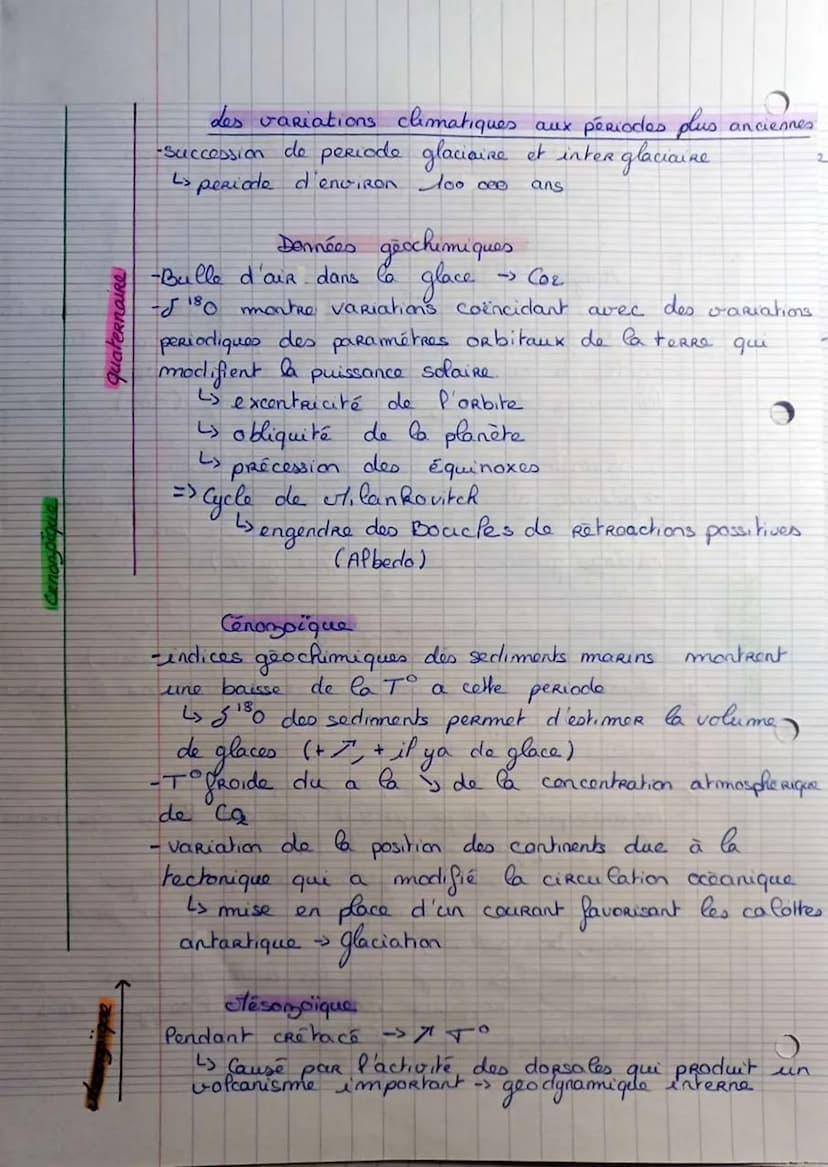 des variations climatiques aux périodes plus anciennes
-succession de periode glaciaire et interglaciaire
↳ periode d'environ 100 000 ans
Données géochimiques
-Bulle d'air dans la glace → CO2
-δ 18O montre variations coïncidant avec des variations
periodiques des paramétres orbitaux de la terre qui
modifient la puissance solaire.
↳ excentricité de l'orbite
↳ obliquité de la planète
↳ précession des équinoxes
=> Cycle de Milankovitch
↳ engendre des Boucles de rétroactions possitives
(Albedo)
quaternaire
Cénozoïque
Cénozoïque
-indices géochimiques des sediments marins montrent
une baisse de la T° a cette periode
↳ δ 18O des sediments permet d'estimer la volume
de glaces (+ ↗, + il y a de glace)
-T° froide du a la ↘ de la concentration atmosphérique
de CO2
- variation de la position des continents due à la
tectonique qui a modifié la circulation océanique
↳ mise en place d'un courant favorisant les calottes
antartique → glaciation
Mésozoïque
Pendant crétacé → ↗ T°
↳ Causé par l'activité des dorsales qui produit un
volcanisme important → geodynamique interne